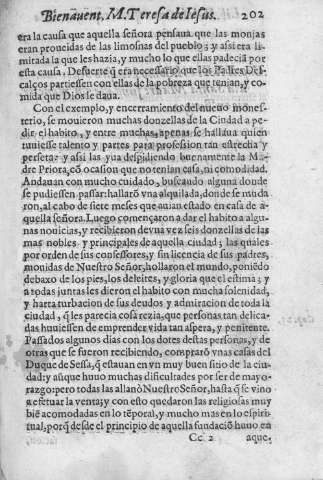 Bienauent. M. Teresa de Iesus. 202
era la causa que aquella señora pensaua que las monjas
eran proueidas de las limosnas del pueblo; y assi era li-
mitada la que les hazia, y mucho lo que ellas padeciā por
esta causa. Desuerte q̄ era necessario que los Padres Des-
calços partiessen con ellas de la pobreza que tenian, y co-
mida que Dios se daua.
Con el exemplo, y encerramiento del nueuo mones-
terio, se mouieron muchas donzellas de la Ciudad a pe-
dir el habito, y entre muchas, apenas se hallaua quien
tuuiesse talento y partes para profession tan estrecha y
perfeta: y assi las yua despidiendo buenamente la Ma-
dre Priora, cō ocasion que no tenian casa, ni comodidad.
Andauan con mucho cuidado, buscando alguna donde
se pudiessen passar: hallarō vna alquilada, donde se muda
ron, al cabo de siete meses que auian estado en casa de a-
quella señora. Luego començaron a dar el habito a algu-
nas nouicias, y recibieron de vna vez seis donzellas de las
mas nobles y principales de aquella ciudad; las quales
por orden de sus confessores, y sin licencia de sus padres,
mouidas de Nuestro Señor, hollaron el mundo, poniēdo
debaxo de los pies, los deleites, y gloria que el estima; y
a todas juntas les dieron el habito con mucha solenidad,
y harta turbacion de sus deudos y admiracion de toda la
ciudad, q̄ les parecia cosa rezia, que personas tan delica-
das huuiessen de emprender vida tan aspera, y penitente.
Passados algunos dias con los dotes destas personas, y de
otras que se fueron recibiendo, comprarō vnas casas del
Duque de Sessa, q̄ estauan en vn muy buen sitio de la ciu-
dad: y aūque huuo muchas dificultades por ser de mayo-
razgo: pero todas las allanò Nuestro Señor, hasta q̄ se vino
a efetuar la venta; y con esto quedaron las religiosas muy
biē acomodadas en lo tēporal, y mucho mas en lo espiri-
tual, porq̄ desde el principio de aquella fundaciō huuo en
Cc 2 aque-